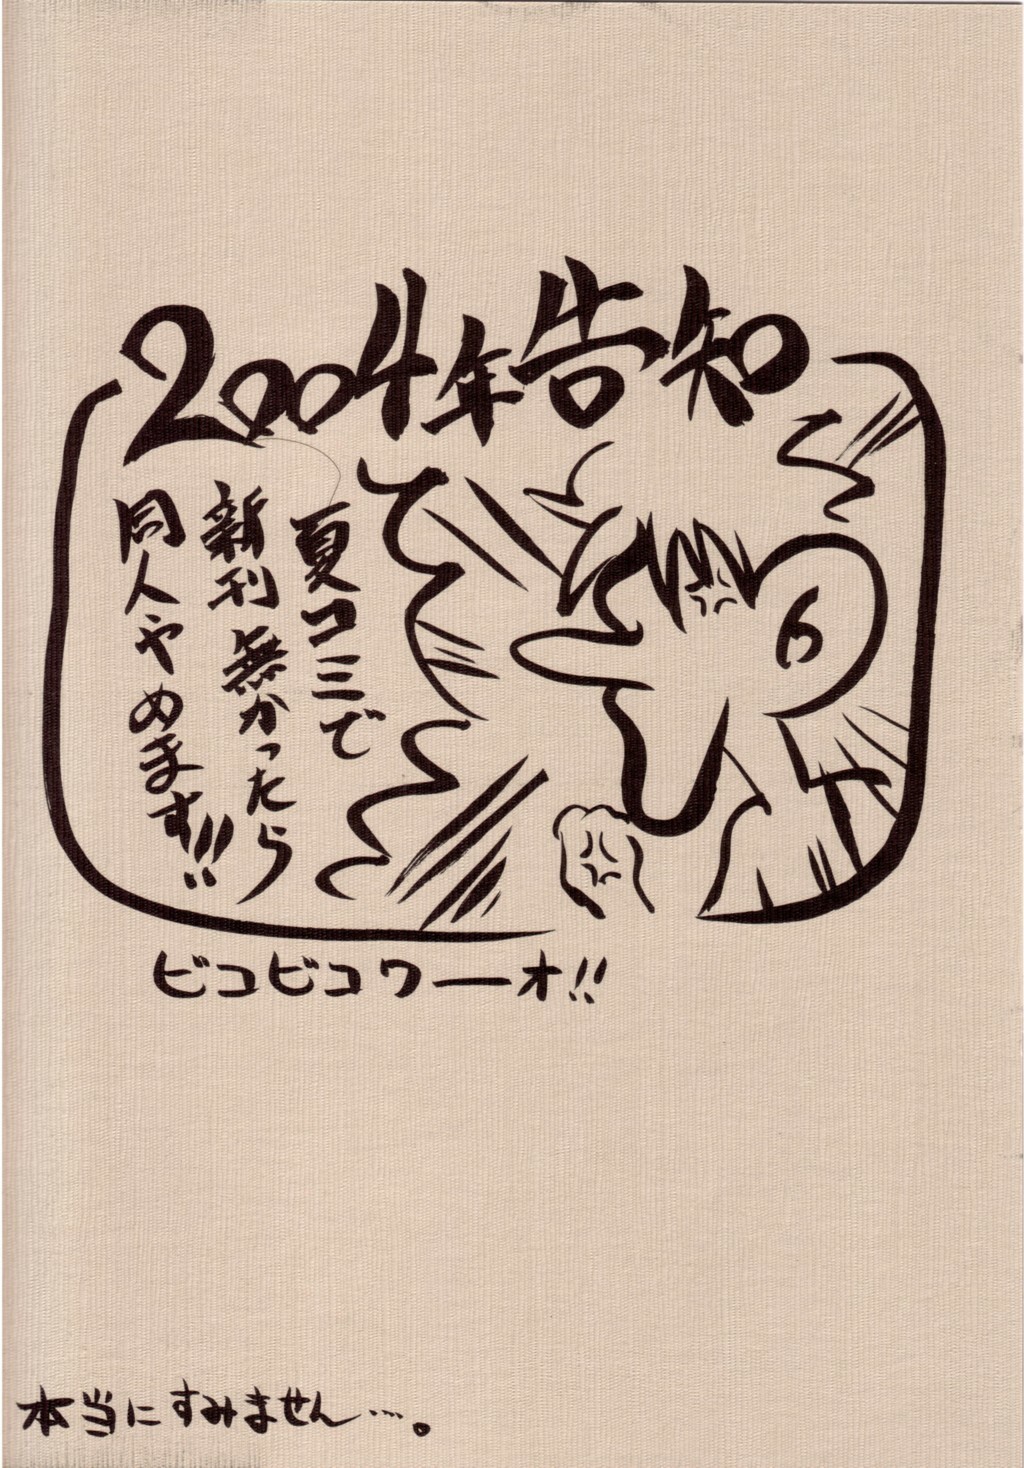 2004年告知
夏コミで
新刊無かったら
同人やめます!!
ビコビコワーオ!!
本当にすみません…。